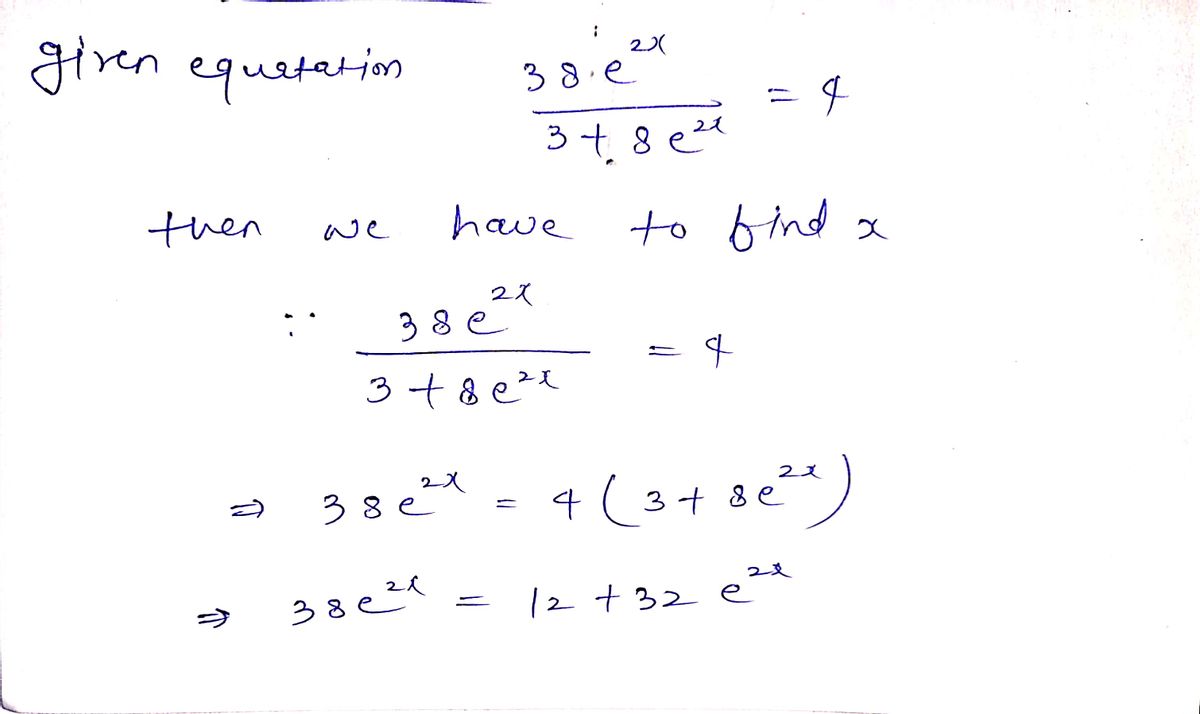 given equetation 38.e^2x / 3 + 8 e^2x = 4
then we have to find x
∵ 38e^2x / 3 + 8e^2x = 4
⇒ 38e^2x = 4 ( 3 + 8e^2x )
⇒ 38e^2x = 12 + 32 e^2x